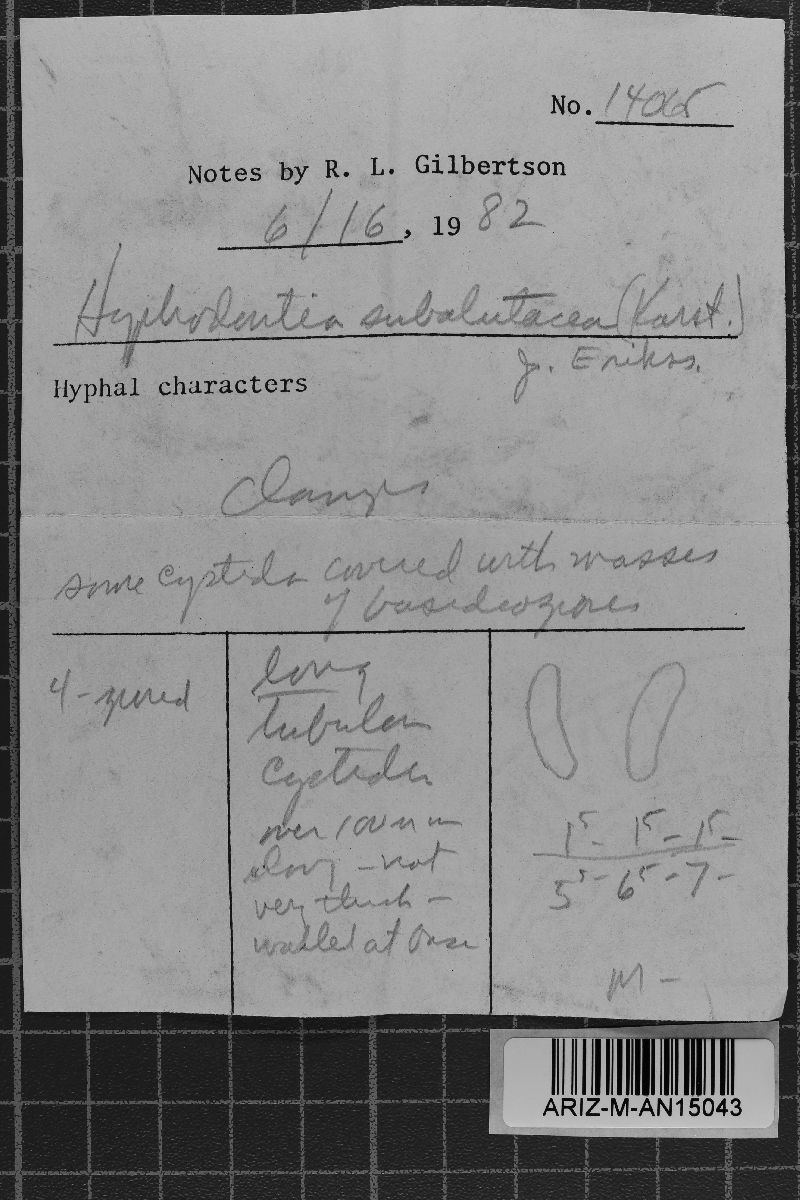 No. 14065
Notes by R. L. Gilbertson
6/16, 19 82
Hyphodontia subalutacea (Karst.)
J. Erikss.
Hyphal characters
clamps
some cystidia covered with masses
of basidiospores
4-spored
long
tubular
cystidia
over 100 µm
long - not
very thick -
walled at base
1⁵- 1⁵- 1⁵-
5⁵- 6⁵- 7-
M -
ARIZ-M-AN15043